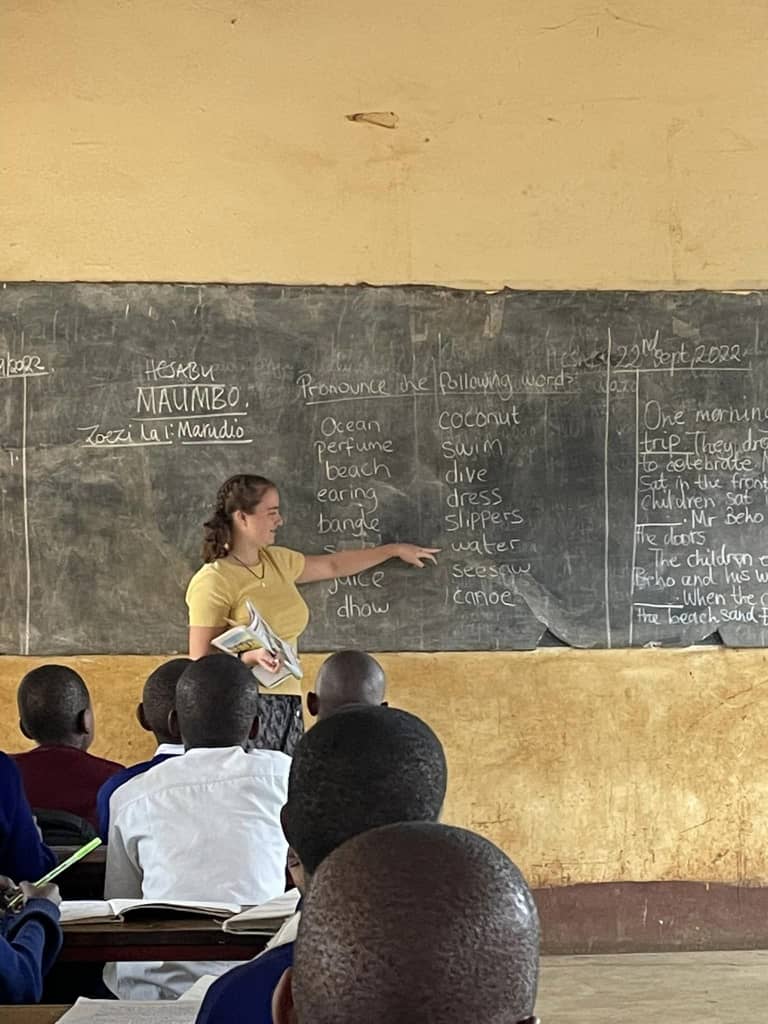 9/2022.
HESABU
MAUMBO.
Zoezi la 1: Marudio
Pronounce the following words
Ocean
perfume
beach
earing
bangle
juice
dhow
coconut
swim
dive
dress
slippers
water
seesaw
canoe
22nd Sept, 2022
One morning
trip They dro
to celebrate
Sat in the front
Children sat
. Mr Beho
the doors
The children e
Beho and his w
. When the c
the beach sand